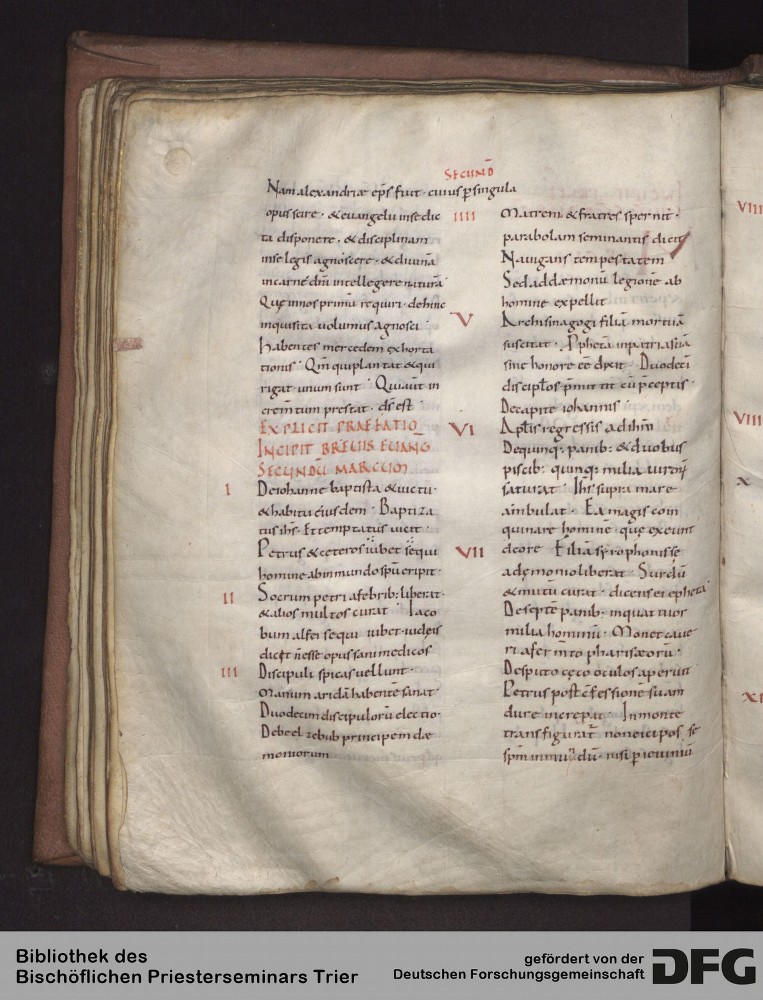 SECUND
Nam alexandriæ ep̄s fuit · cuius p̱ singula
opus scire · & euangelii inse dic
ta disponere · & disciplinam
inse legis agnoscere · & diuinā
incarne dn̄i intellegere naturā
Quę innos primū requiri · dehinc
inquisita uolumus agnosci ·
habentes mercedem exhorta
tionis · Qm̄ qui plantat & qui
rigat · unum sunt · Qui aut̄ in
crem̄tum prestat · d̄s est
EXPLICIT PRAEFATIO
INCIPIT BREUIS EUANG̅
SECUNDU̅ MARCUM
I De iohanne baptista & uictu ·
& habitu eiusdem · Baptiza
tus ih̄s · Et temptatus uicit ·
Petrus & ceteros iubet sequi
homine ab inmundo sp̄u eripit ·
II Socrum petri a febrib; liberat ·
& alios multos curat · Iaco
bum alfei sequi iubet · iudeis
dicit n̄ esse opus sani medicos
III Discipuli spicas uellunt ·
Manum aridā habente sanat ·
Duodecim discipulorū electio ·
De beelzebub principem dæ
moniorum
IIII Matrem & fratres spernit ·
parabolam seminantis dicit
Nauigans tempestatem
Sed ad dæmonū legionē ab
homine expellit
V Archisinagogi filiā mortuā
suscitat · P̱phetā in patria sua
sine honore eē dixit · Duodeci
discipłos p̱mittit cū p̄ceptis ·
Decapite iohannis ·
VI Apłis regressis adihm̄
De quinq; panib; & duobus
piscib; quinq; milia uirorū
saturat · Ih̄s supra mare
ambulat · Ea magis coin
quinare hominē · quę exeunt
VII de ore · Filiā syrophonissę
a dęmonio liberat · Surdū
& mutū curat · dicens ei epheta
De septē panib; inquattuor
milia hominū · Monet caue
ri a ferm̄to pharisæorū ·
Desputo cęco oculos aperuit
Petrus post cōfessionē suam
dure increpat · In monte
transfigurat̄ non eici pos se
VIII
VIIII
X
XI
Bibliothek des
Bischöflichen Priesterseminars Trier
gefördert von der
Deutschen Forschungsgemeinschaft
DFG